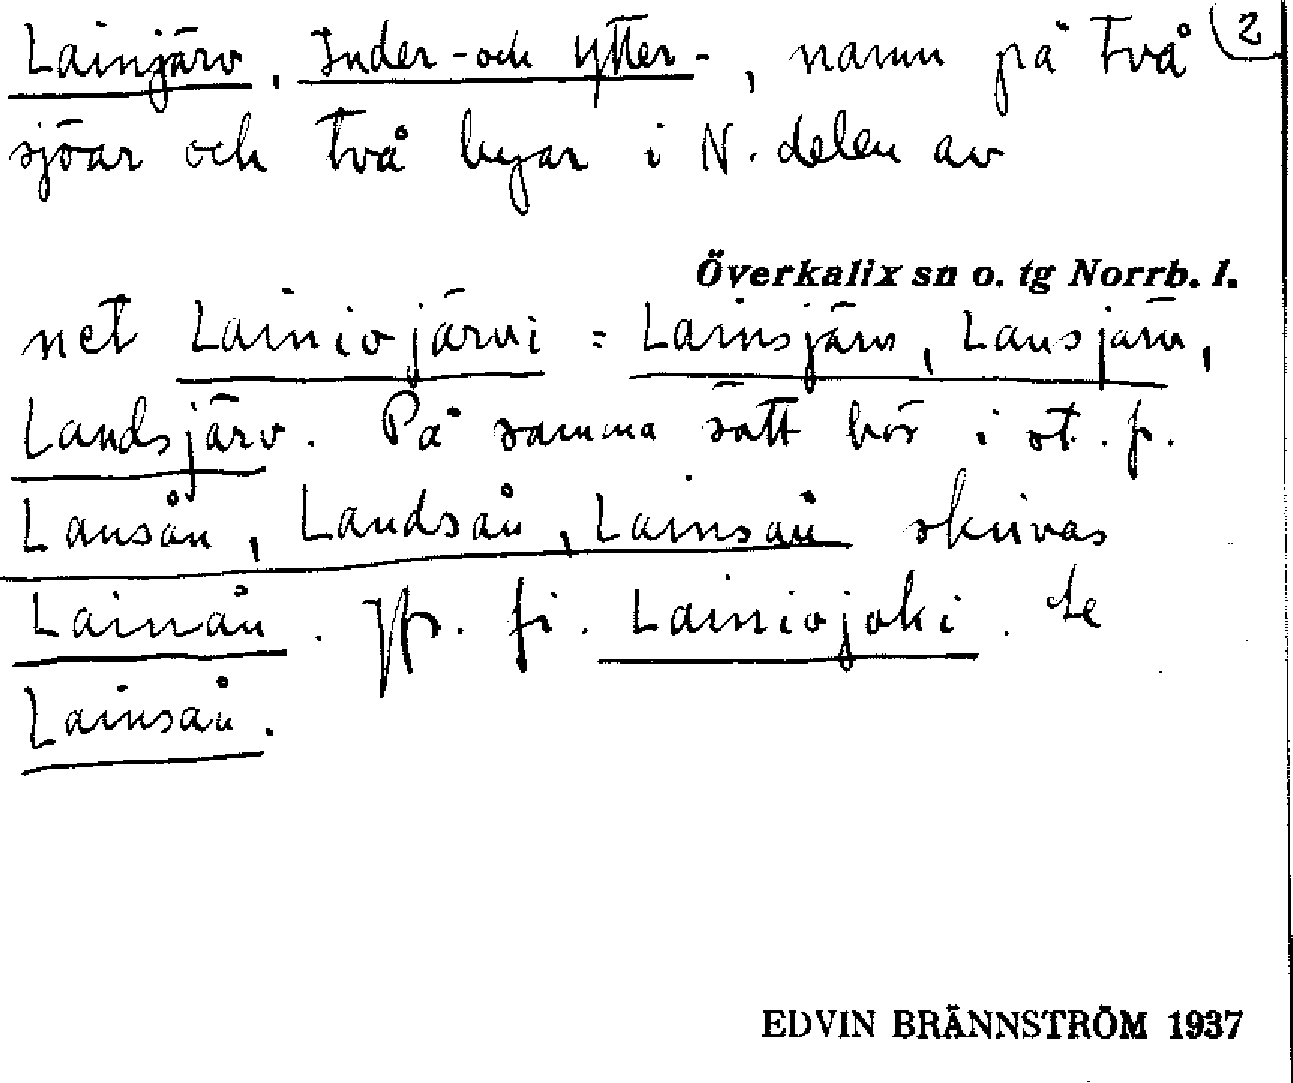 Lainjärv, Inder- och Ytter-, namn på två 2
sjöar och två byar i N. delen av
Överkalix sn o. tg Norrb. l.
net Lainiojärvi = Lainsjärv, Lansjärv,
Landsjärv. På samma sätt bör i st. f.
Lansån, Landsån, Lainsån skrivas
Lainån. Jfr. fi. Lainiojoki. Se
Lainsån.
EDVIN BRÄNNSTRÖM 1937